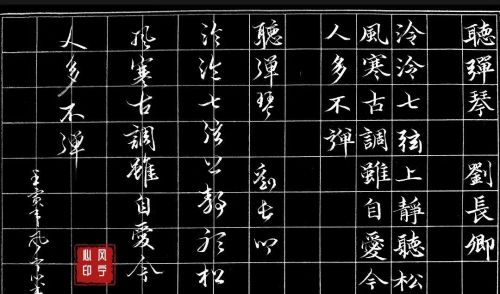 聽彈琴 劉長卿
泠泠七弦上靜聽松
風寒古調雖自愛今
人多不彈
聽彈琴 劉長卿
泠泠七弦上靜聽松
風寒古調雖自愛今
人多不彈
壬寅年风亭
风亭
心印